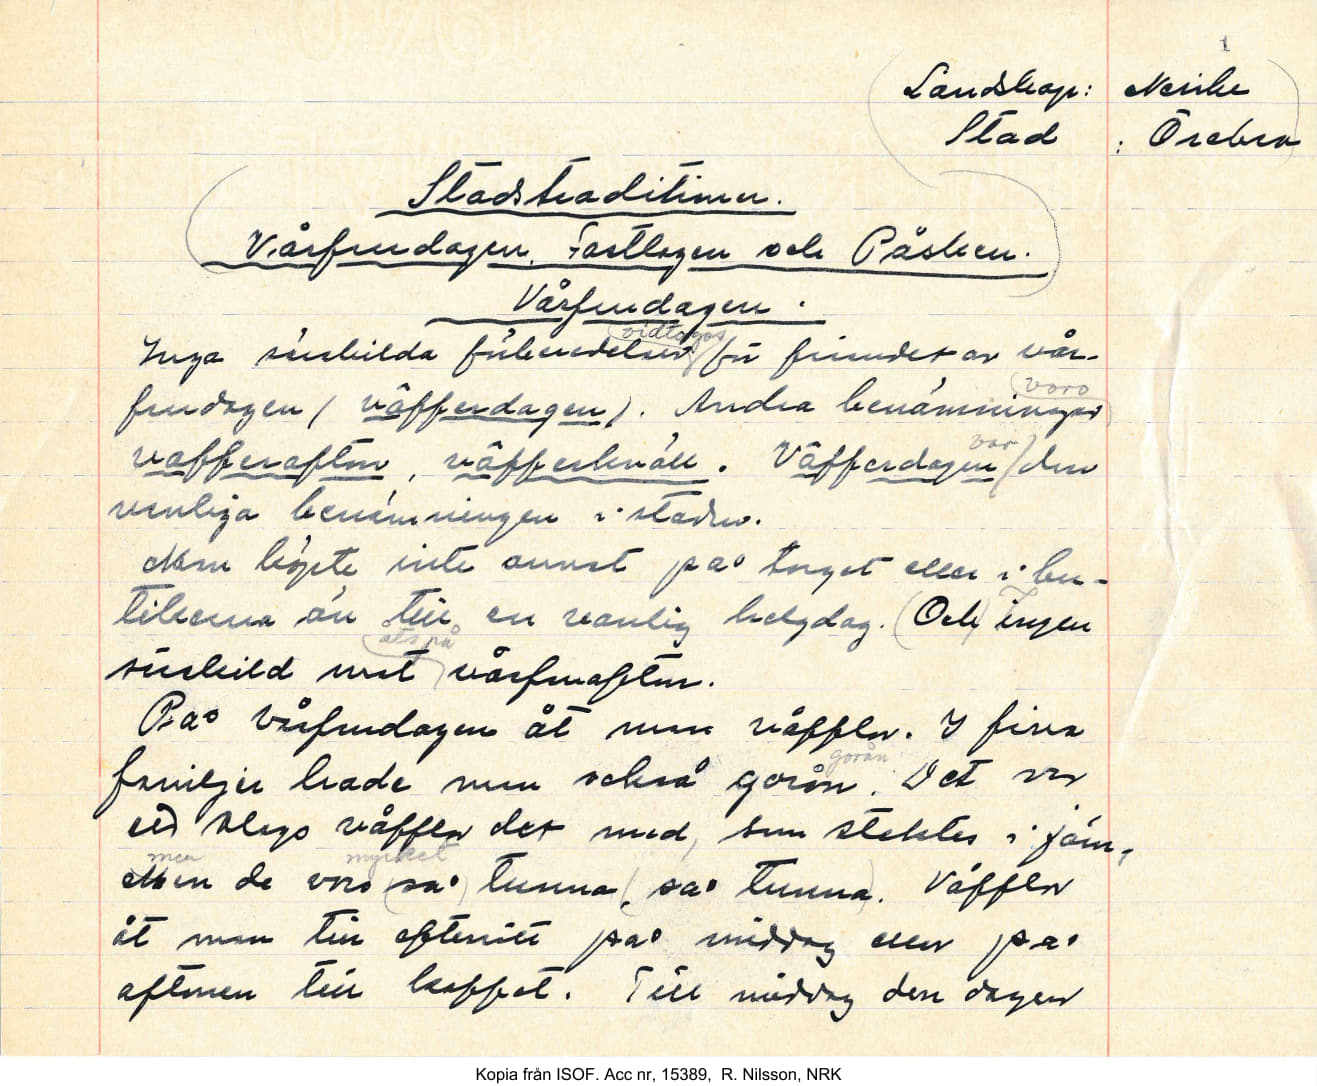 1
Landskap: Nerike
Stad : Örebro
Stadstraditioner.
Vårfrudagen, Fastlagen och Påsken.
Vårfrudagen.
vidtogos
Inga särskilda förberedelser för firandet av vår-
voro
frudagen (våfferdagen). Andra benämningar
var
vafferafton, våfferkväll. Våfferdagen den
vanliga benämningen i staden.
Man köpte inte annat på torget eller i bu-
tikerna än till en vanlig helgdag. (Och) ingen
åts på
särskild mat vårfruafton.
På vårfrudagen åt man våfflor. I fina
gorån
familjer hade man också gorån. Det var
ett slags våfflor det med, som stektes i järn,
men mycket
Men de voro (så) tunna (, så tunna). Våfflor
åt man till efterrätt på middag eller på
aftonen till kaffet. Till middag den dagen
Kopia från ISOF. Acc nr, 15389, R. Nilsson, NRK